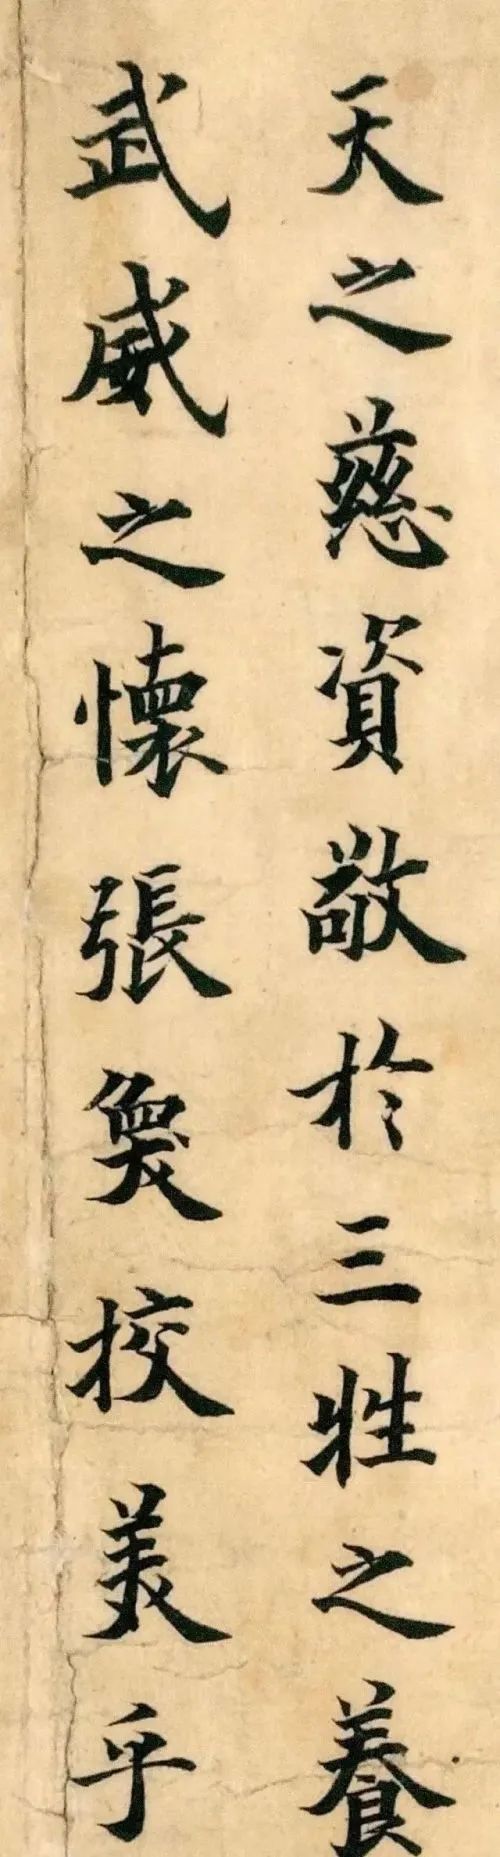 天之慈資敬於三牲之養
武威之懷張奐挍美乎